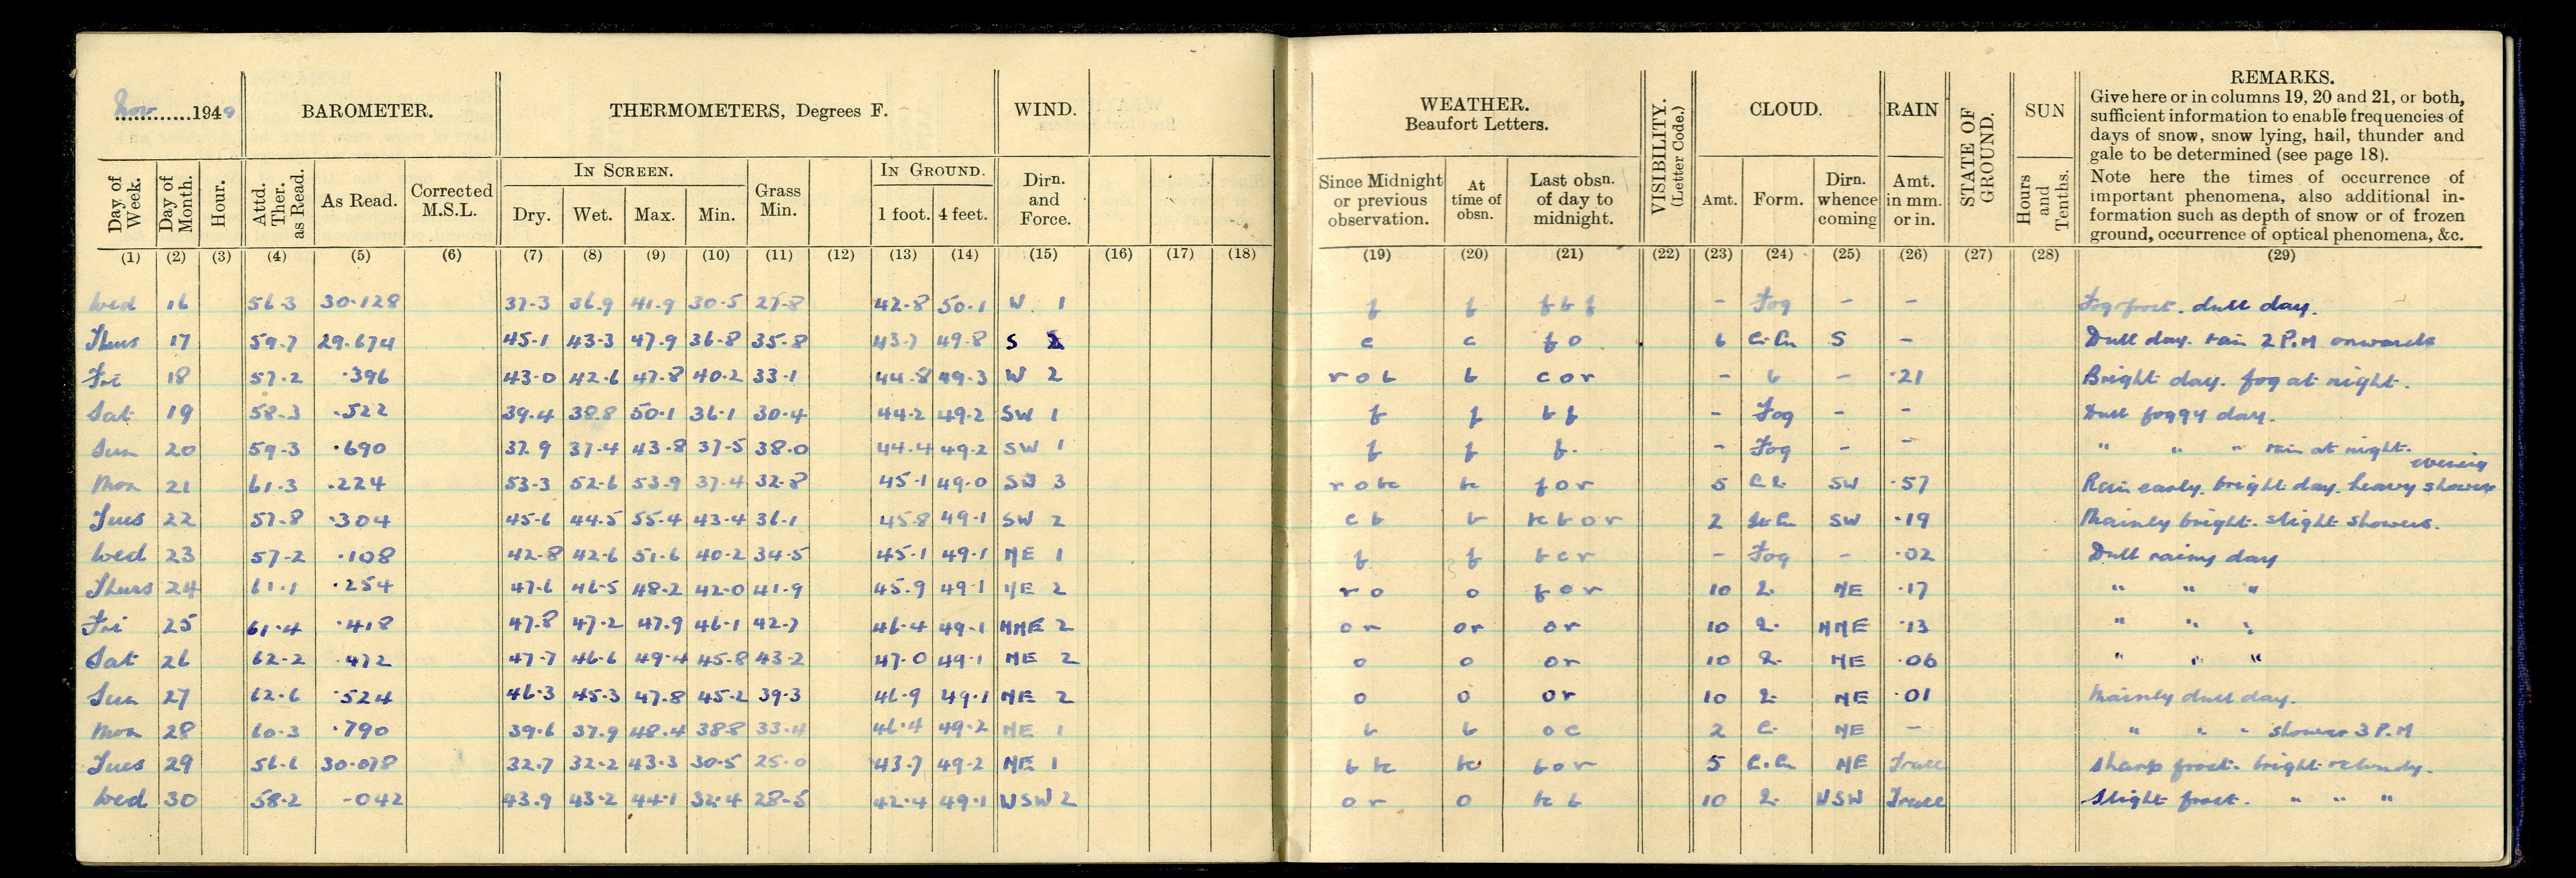 Nov 1949 BAROMETER. THERMOMETERS, Degrees F. WIND. WEATHER. Beaufort Letters. VISIBILITY. (Letter Code.) CLOUD. RAIN STATE OF GROUND. SUN REMARKS.
Give here or in columns 19, 20 and 21, or both,
sufficient information to enable frequencies of
days of snow, snow lying, hail, thunder and
gale to be determined (see page 18).
Note here the times of occurrence of
important phenomena, also additional in-
formation such as depth of snow or of frozen
ground, occurrence of optical phenomena, &c.
IN SCREEN. IN GROUND.
Day of Week. Day of Month. Hour. Attd. Ther. as Read. As Read. Corrected M.S.L. Dry. Wet. Max. Min. Grass Min. 1 foot. 4 feet. Dirn. and Force. Since Midnight or previous observation. At time of obsn. Last obsn. of day to midnight. Amt. Form. Dirn. whence coming Amt. in mm. or in. Hours and Tenths.
(1) (2) (3) (4) (5) (6) (7) (8) (9) (10) (11) (12) (13) (14) (15) (16) (17) (18) (19) (20) (21) (22) (23) (24) (25) (26) (27) (28) (29)
Wed 16 56.3 30.128 37.3 36.9 41.9 30.5 27.8 42.8 50.1 W 1 f f f b f - Fog - - Fog frost. dull day.
Thurs 17 59.7 29.674 45.1 43.3 47.9 36.8 35.8 43.7 49.8 S c c f o 6 S - Dull day. rain 2 P.M onwards
Fri 18 57.2 .396 43.0 42.6 47.8 40.2 33.1 44.8 49.3 W 2 r o b b c o r - b - .21 Bright day. fog at night.
Sat 19 58.3 .522 39.4 38.8 50.1 36.1 30.4 44.2 49.2 SW 1 f f b f - Fog - - Dull foggy day.
Sun 20 59.3 .690 37.9 37.4 43.8 37.5 38.0 44.4 49.2 SW 1 f f f. - Fog - - " " " rain at night.
Mon 21 61.3 .224 53.3 52.6 53.9 37.4 32.8 45.1 49.0 SW 3 r o bc bc f o r 5 SW .57 Rain early. bright day. heavy showers evening
Tues 22 57.8 .304 45.6 44.5 55.4 43.4 36.1 45.8 49.1 SW 2 c b b bc b o r 2 SW .19 Mainly bright. slight showers.
Wed 23 57.2 .108 42.8 42.6 51.6 40.2 34.5 45.1 49.1 NE 1 f f b c r - Fog - .02 Dull rainy day
Thurs 24 61.1 .254 47.6 46.5 48.2 42.0 41.9 45.9 49.1 NE 2 r o o f o r 10 NE .17 " " "
Fri 25 61.4 .418 47.8 47.2 47.9 46.1 42.7 46.4 49.1 NNE 2 o r o r o r 10 NNE .13 " " "
Sat 26 62.2 .472 47.7 46.6 49.4 45.8 43.2 47.0 49.1 NE 2 o o o r 10 NE .06 " " "
Sun 27 62.6 .524 46.3 45.3 47.8 45.2 39.3 46.9 49.1 NE 2 o o o r 10 NE .01 Mainly dull day.
Mon 28 60.3 .790 39.6 37.9 48.4 38.8 33.4 46.4 49.2 NE 1 b b o c 2 C. NE - " " " shower 3 P.M
Tues 29 56.6 30.078 32.7 32.2 43.3 30.5 25.0 43.7 49.2 NE 1 b bc bc b o r 5 NE Trace Sharp frost. bright & cloudy.
Wed 30 58.2 -042 43.9 43.2 44.1 32.4 28.5 42.4 49.1 WSW 2 o r o bc b 10 WSW Trace Slight frost. " " "